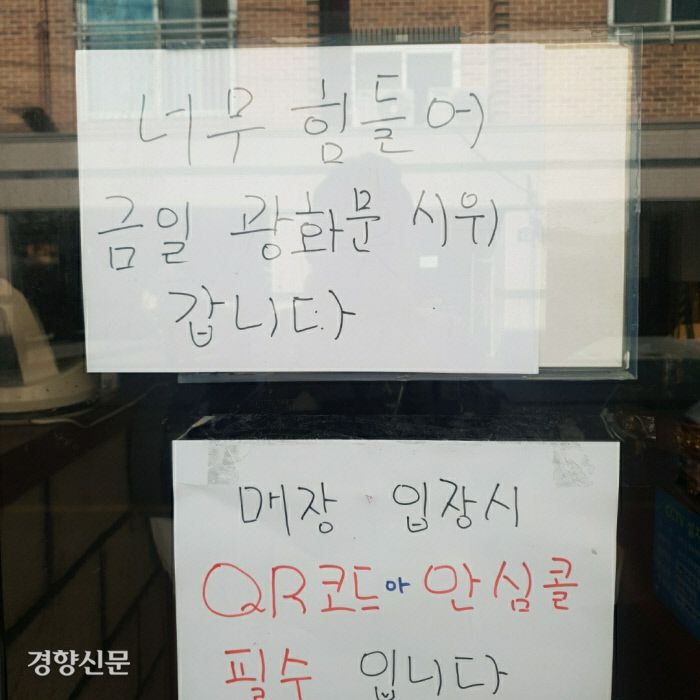 너무 힘들어
금일 광화문 시위
갑니다
매장 입장시
QR코드아 안심콜
필수 입니다
경향신문